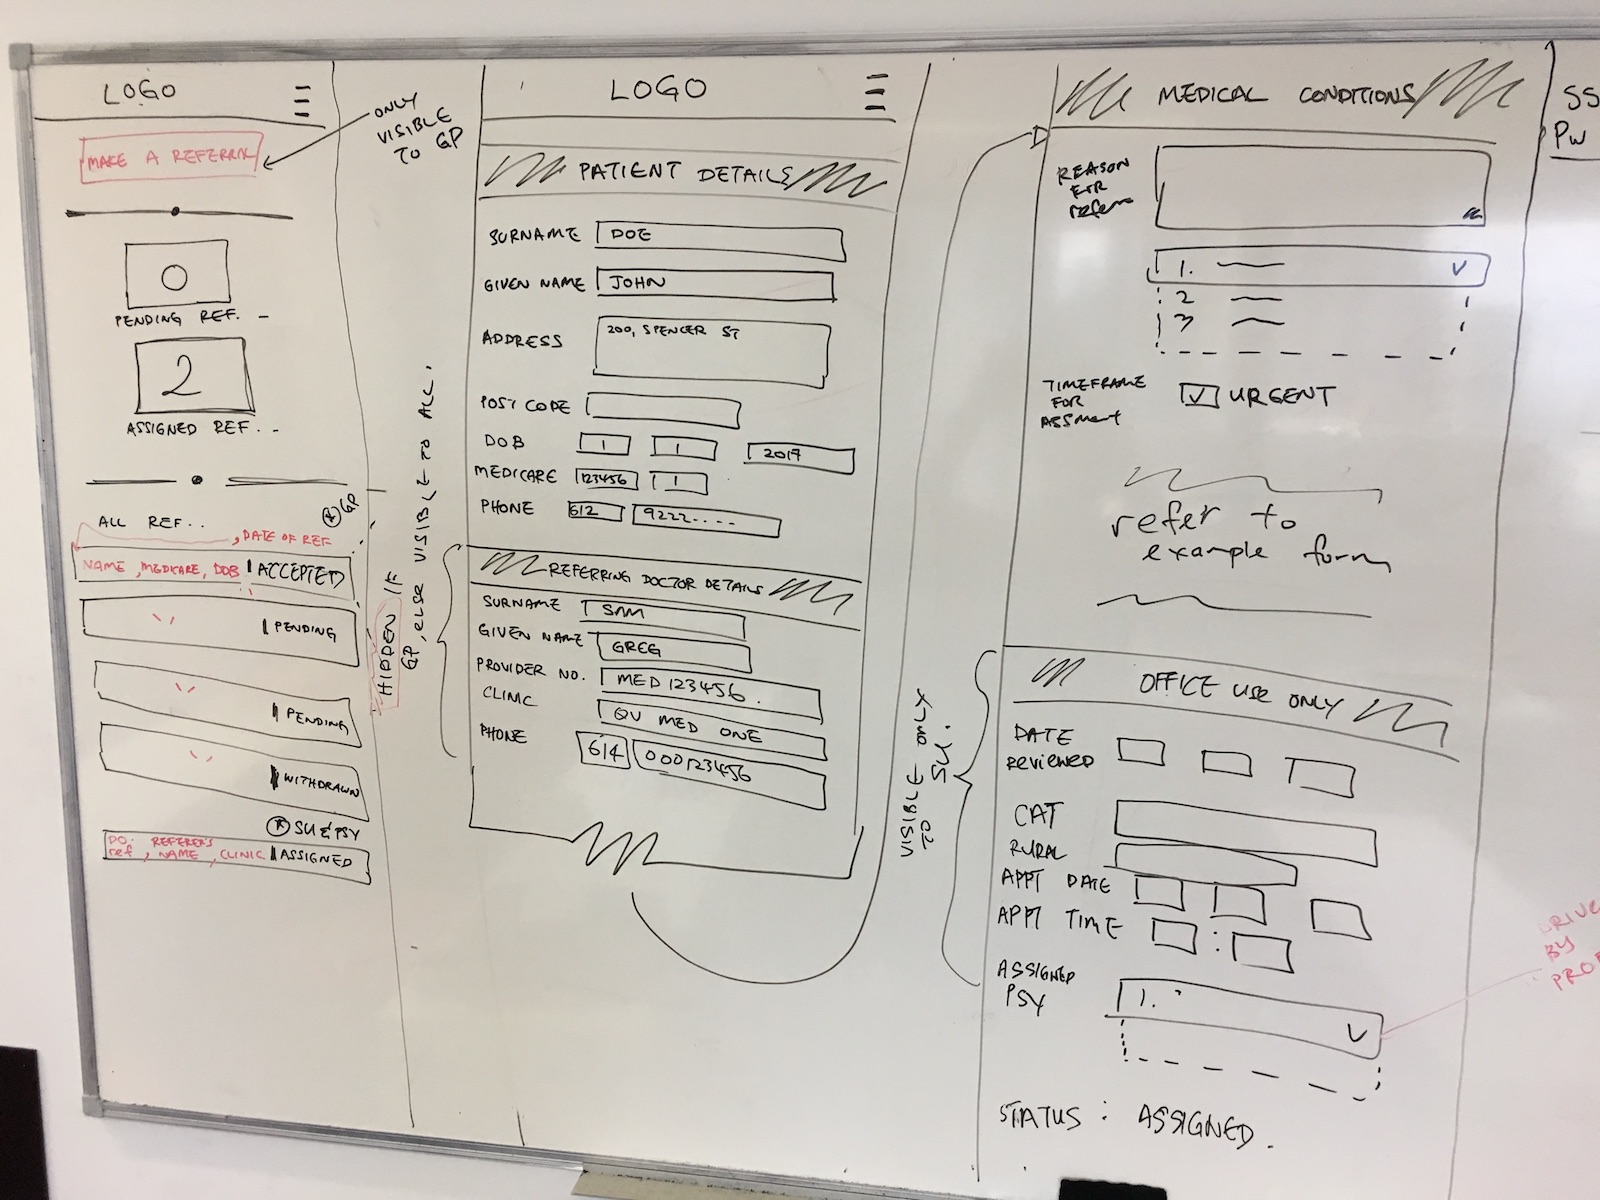 LOGO
MAKE A REFERRAL
ONLY
VISIBLE
TO GP
0
PENDING REF. _
2
ASSIGNED REF. . _
ALL REF..
* GP
, DATE OF REF
NAME, MEDICARE, DOB
ACCEPTED
PENDING
PENDING
WITHDRAWN
* SU & PSY
DO. REFERER'S
ref, NAME, CLINIC
ASSIGNED
HIDDEN IF
GP, ELSE VISIBLE TO ALL.
LOGO
PATIENT DETAILS
SURNAME DOE
GIVEN NAME JOHN
ADDRESS 200, SPENCER ST
POST CODE
DOB 1 1 2017
MEDICARE 123456 1
PHONE 612 9222.....
REFERRING DOCTOR DETAILS
SURNAME SAM
GIVEN NAME GREG
PROVIDER NO. MED 123456.
CLINIC QV MED ONE
PHONE 614 000123456
VISIBLE ONLY
TO SU.
MEDICAL CONDITIONS
REASON
FOR
1.
2
3
TIMEFRAME
FOR
ASSMENT
URGENT
refer to
example form
OFFICE USE ONLY
DATE
REVIEWED
CAT
RURAL
APPT DATE
APPT TIME :
ASSIGNED
PSY
1.
STATUS : ASSIGNED.
SS
PW
BY